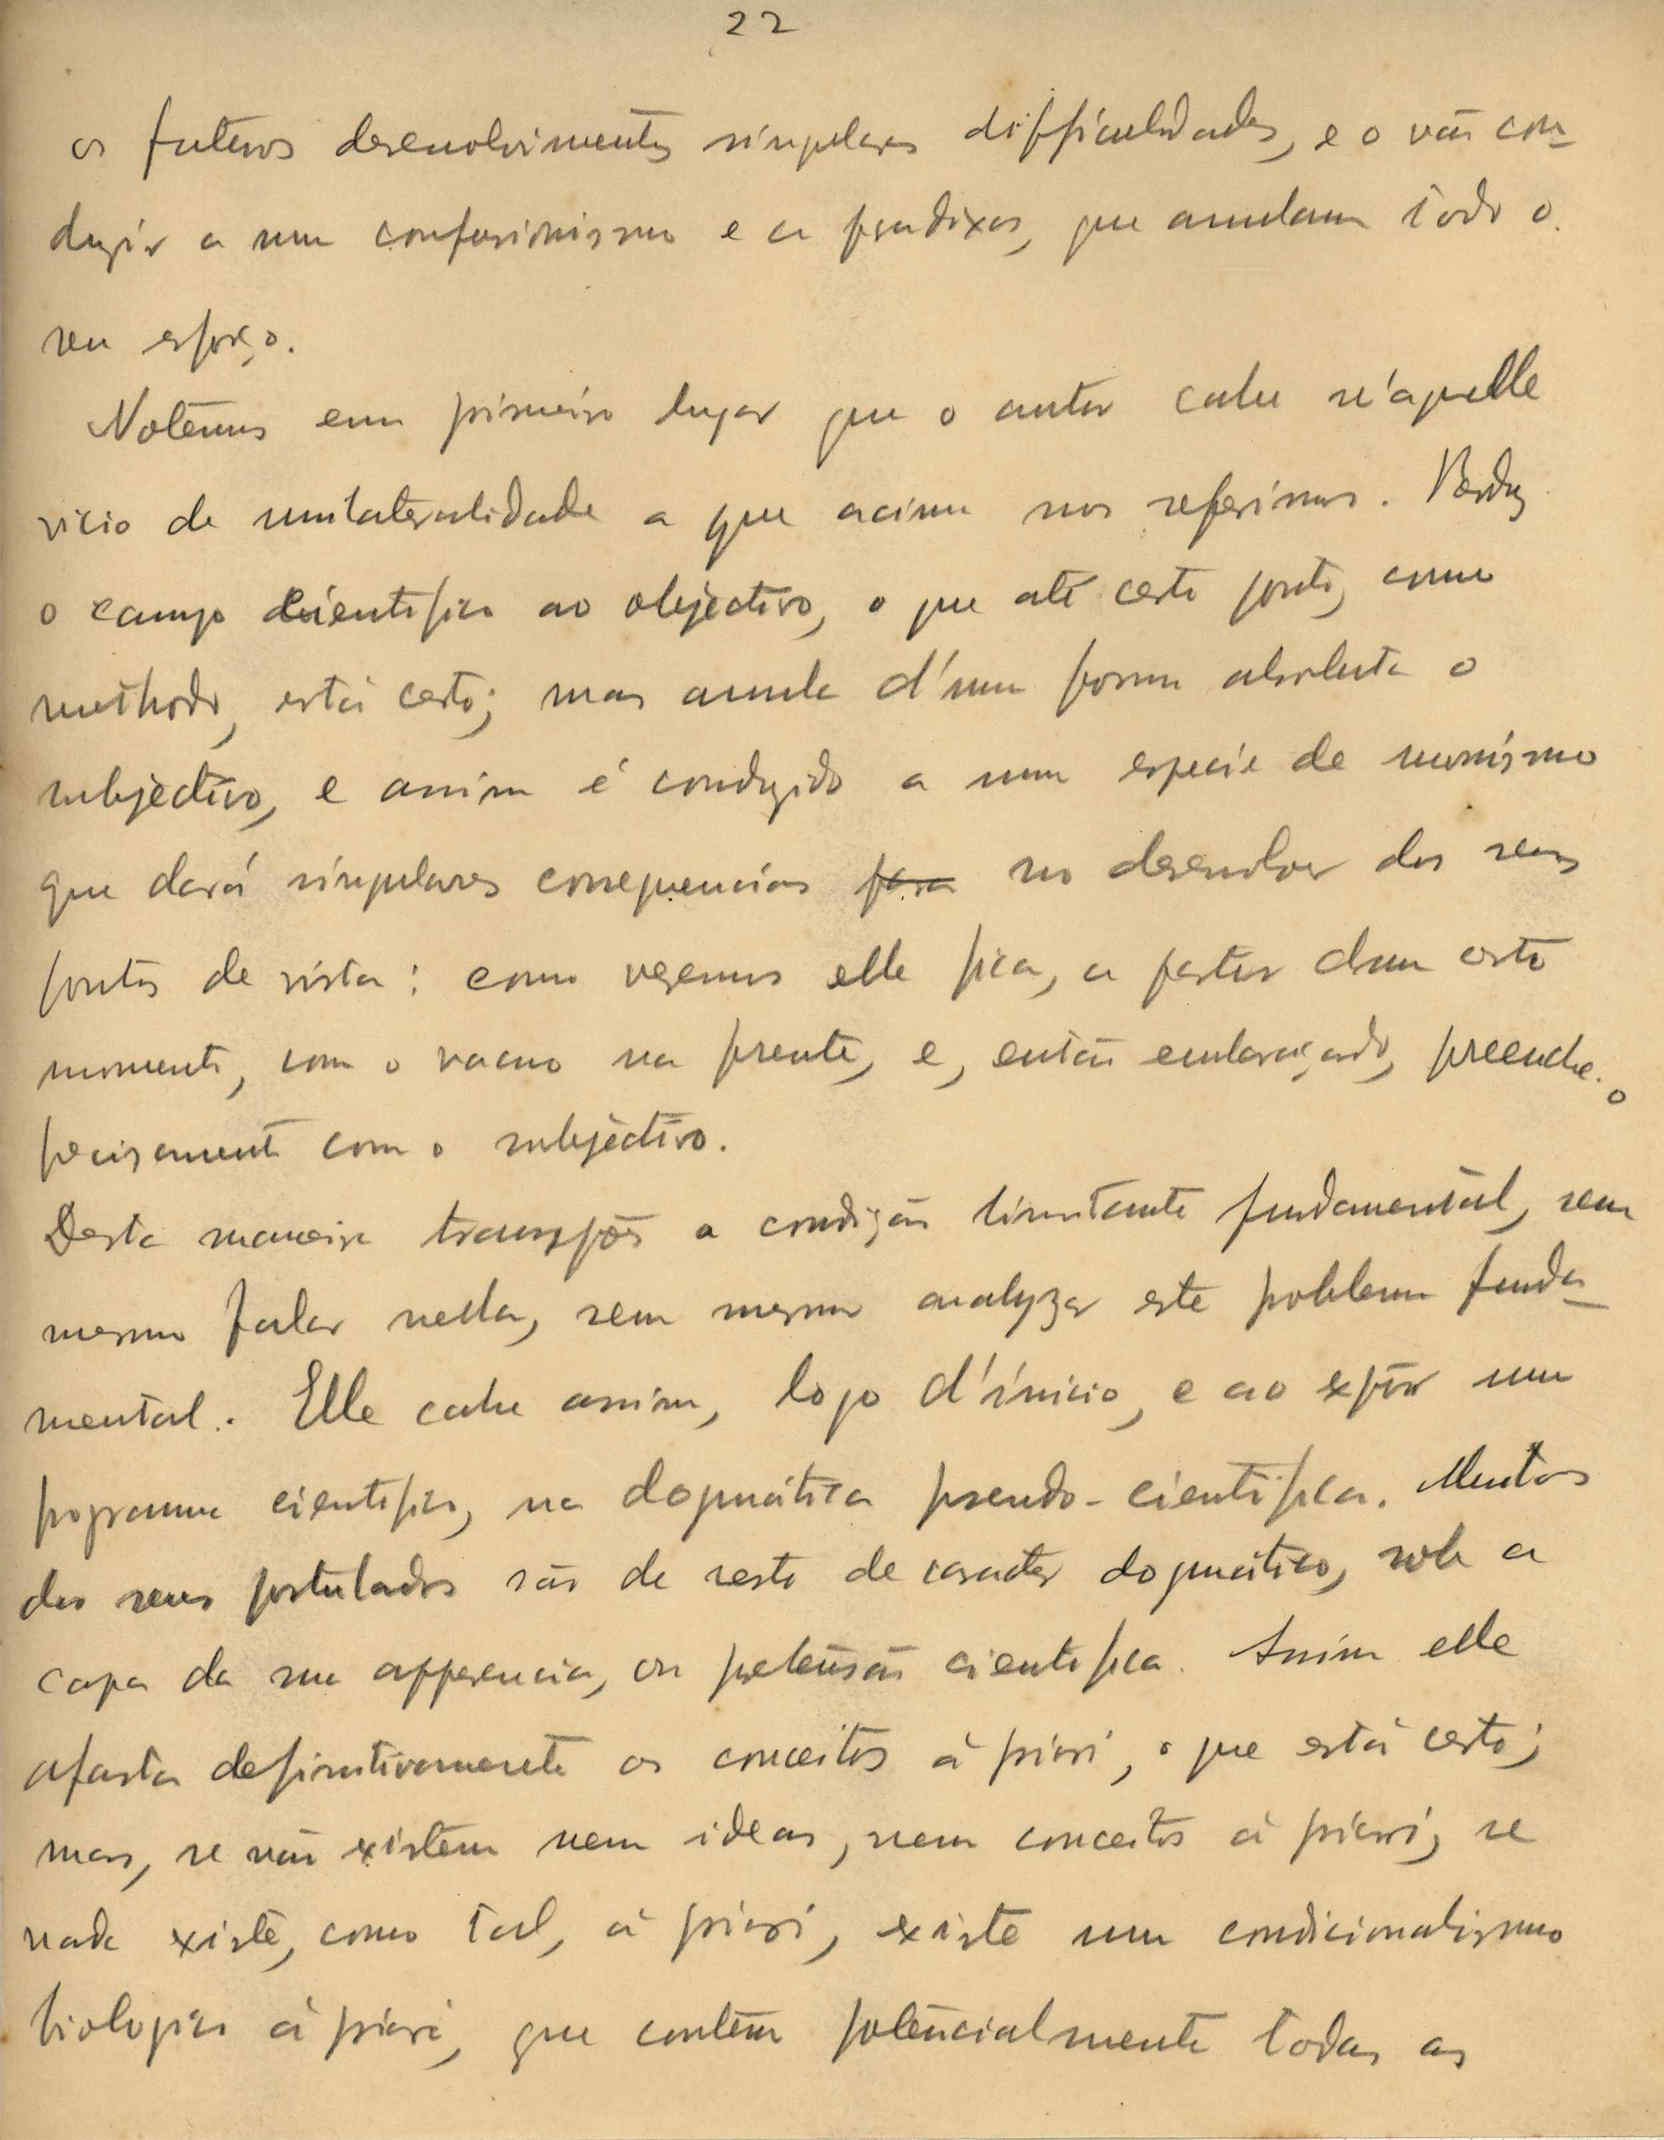 22
os futuros desenvolvimentos singulares difficuldades, e o vão con-
duzir a um confusionismo e a paradoxos, que anulam todo o
seu esforço.
Notemos em primeiro lugar que o autor cahe n'aquelle
vicio de unilateralidade a que acima nos referimos. Reduz
o campo cientifico ao objectivo, o que até certo ponto, como
methodo, está certo; mas anula d'uma forma absoluta o
subjectivo, e assim é conduzido a uma especie de monismo
que dará singulares consequencias para no desenvolver dos seus
pontos de vista: como veremos elle fica, a partir dum certo
momento, com o vacuo na frente, e, então embaraçado, preenche-o
precisamente com o subjectivo.
Desta maneira transpõe a condição limitante fundamental, sem
mesmo falar nella, sem mesmo analyzar este problema funda-
mental. Elle cahe assim, logo d'ínicio, e ao expôr um
programa cientifico, na dogmática pseudo-cientifica. Muitos
dos seus postulados são de resto de caracter dogmático, sob a
capa da sua apparencia, ou pretensão cientifica. Assim elle
afasta definitivamente os conceitos à priori, o que está certo;
mas, se não existem nem ideas, nem conceitos à priori, se
nada existe, como tal, à priori, existe um condicionalismo
biologico à priori, que contêm potencialmente todas as